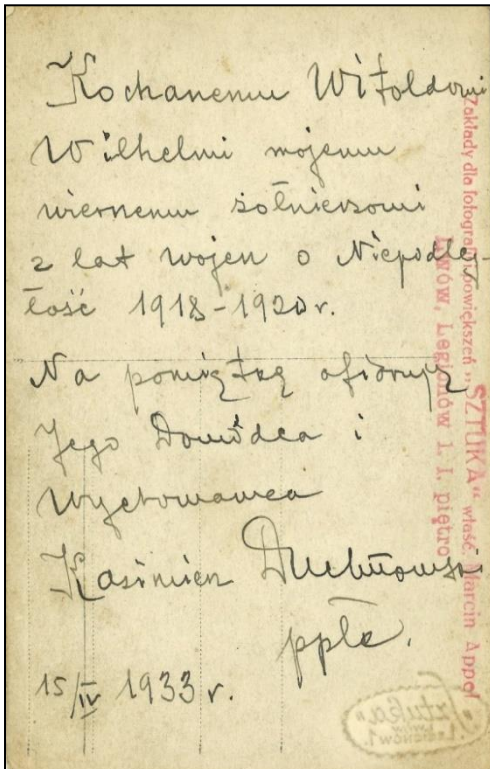 Kochanemu Witoldowi
Wilhelmi mojemu
wiernemu żołnierzowi
z lat wojen o Niepodleg-
łość 1918-1920 r.
Na pamiątkę ofiaruję
Jego Dowódca i
Wychowawca
Kazimierz
ppłk.
15/IV 1933 r.
Zakłady dla fotografji powiększeń „SZTUKA“ właśc. Marcin Appel
Lwów, Legionów 1. I. piętro
„Sztuka“
Lwów
Legionów 1.